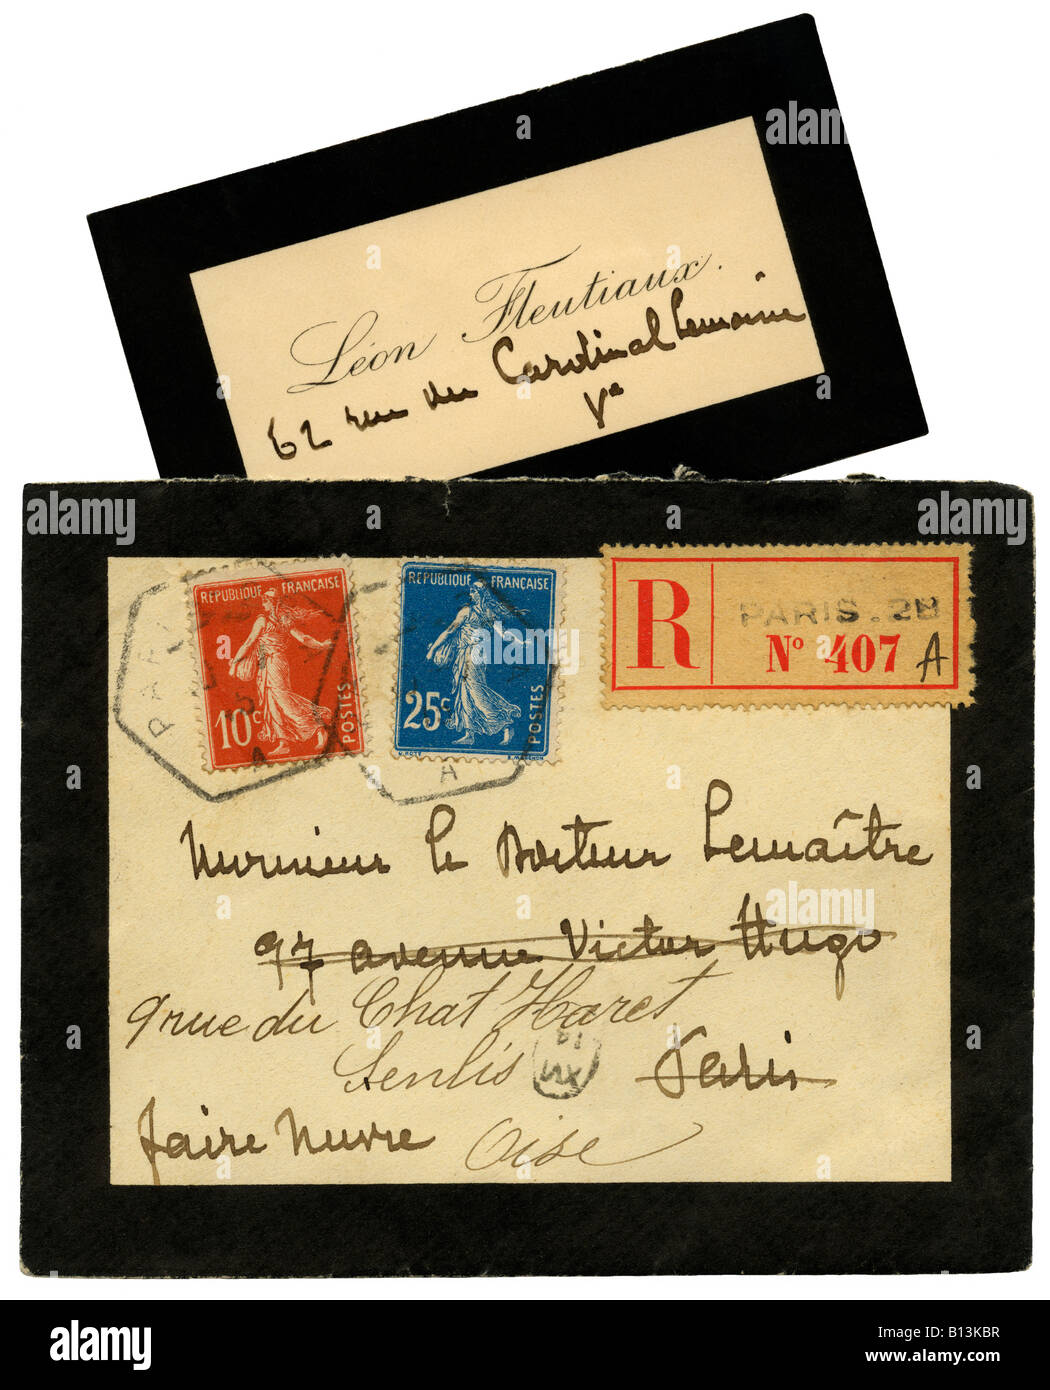 Léon Fleutiaux.
62 rue du Cardinal Lemoine
Ve
RÉPUBLIQUE FRANÇAISE
10c
POSTES
RÉPUBLIQUE FRANÇAISE
25c
POSTES
R
PARIS. 2H
No 407
A
A
A
Monsieur le Docteur Lemaître
97 avenue Victor Hugo
9 rue du Chat Haret
Senlis
Paris
faire suivre
Oise
alamy
Image ID: B13KBR
www.alamy.com